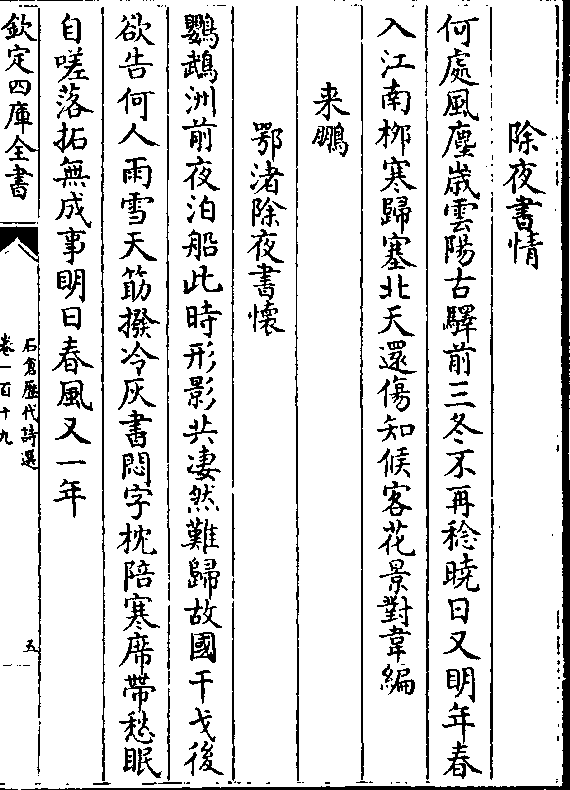 除夜書情
何處風塵歲雲陽古驛前三冬不再稔曉日又明年春
入江南栁寒歸塞北天還傷知候客花景對韋編
来鵬
鄂渚除夜書懷
鸚鵡洲前夜泊船此時形影共凄然難歸故國干戈後
欲告何人雨雪天筯撥冷灰書悶字枕陪寒席帶愁眠
自嗟落拓無成事明日春風又一年
欽定四庫全書
石倉歷代詩選
卷一百十九
五